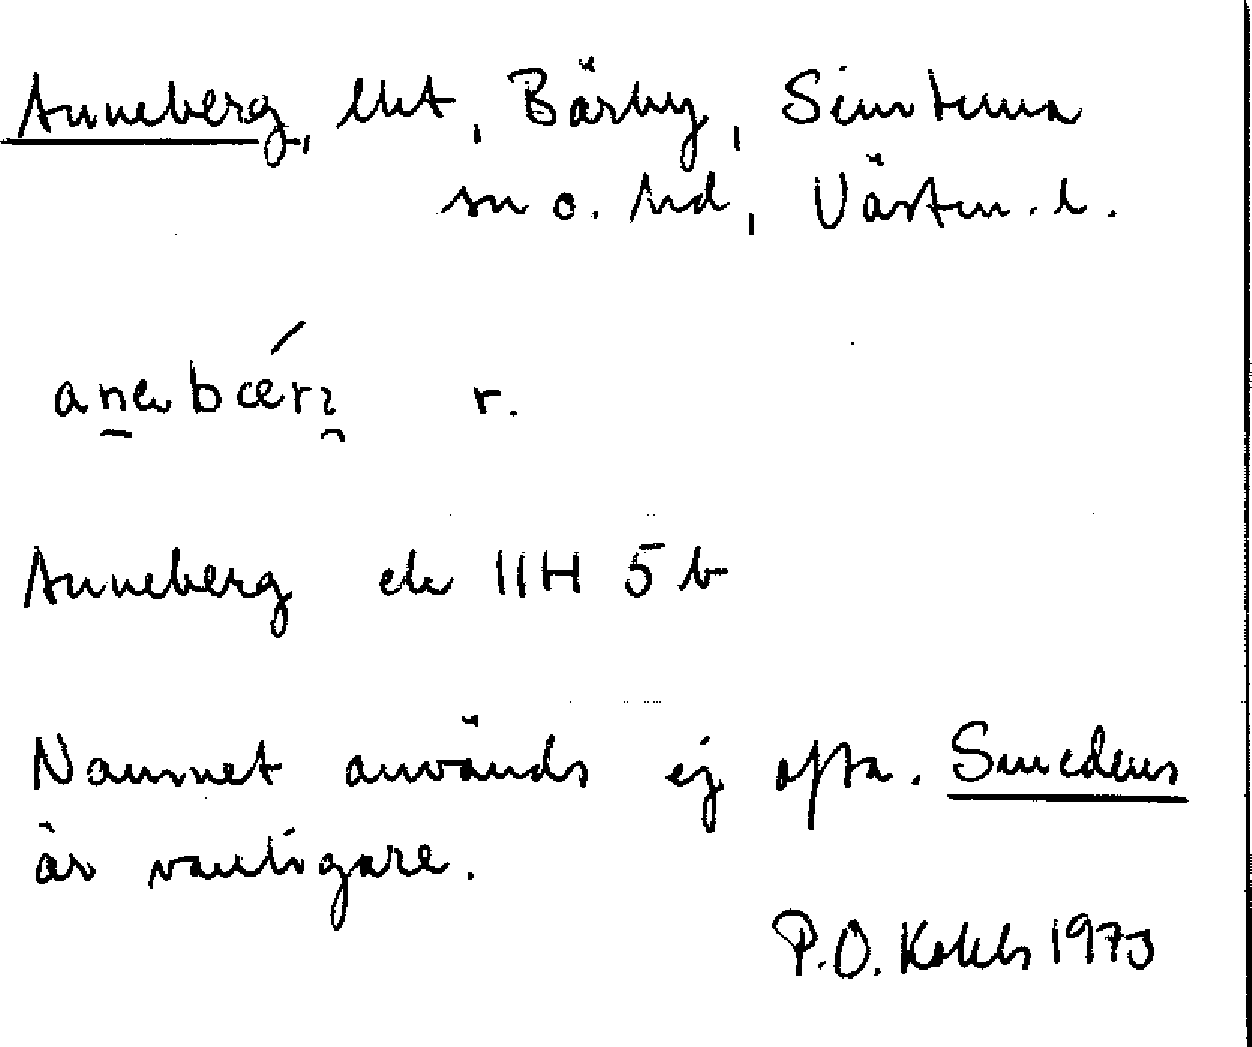 Anneberg, lht, Bärby, Simtuna
sn o. hd, Västm. l.
r.
Anneberg ek 11H 5 b
Namnet används ej ofta. Smedens
är vanligare.
P.O. 1973